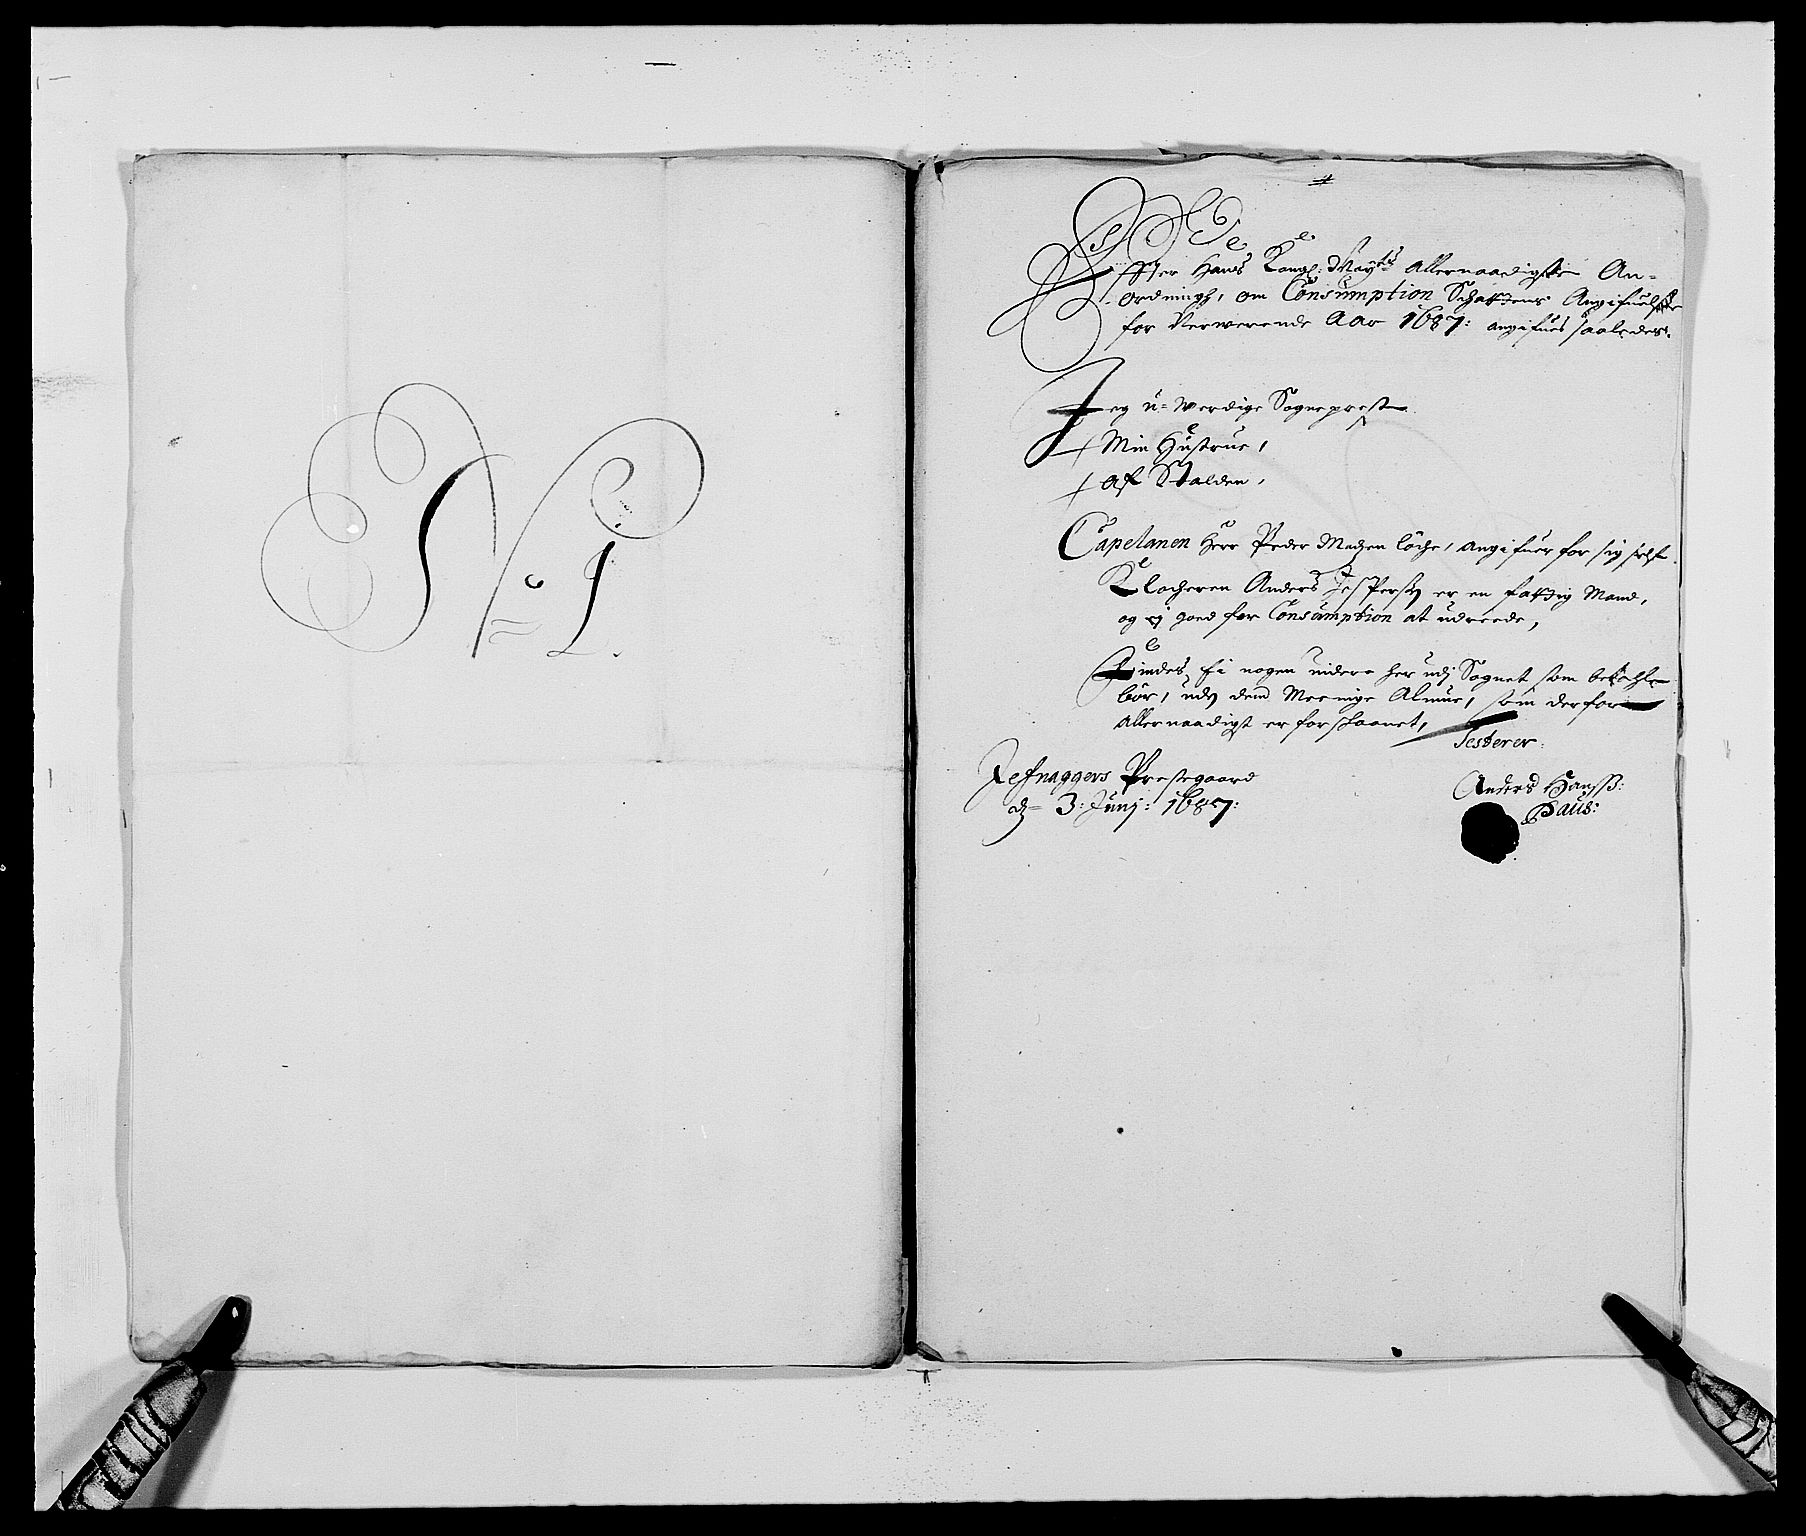 No 1.
Effter Hans Kongl: Mayts Allernaadigste An-
ordningh, om Consumption Schattens Angifuelse
for Nerwerende Aar 1687: angifues saaledes.
Jeg u-werdige Sogneprest
Min Hustrue,
af Stalden,
Capelanen Herr Peder Madzen löche, angifuer for sig self
Klocheren Anders Jespersen er en fattig Mand,
og ej goed for Consumption at udreede,
Findes Ej nogen videre her udj Sognet som betahle
bör, uden dend Meenige Almue, som derfor
allernaadigst er forschaanet,
Testerer
Refnaggers Prestegaard
dn 3: Junj: 1687:
Anders Hanss:
Paus: